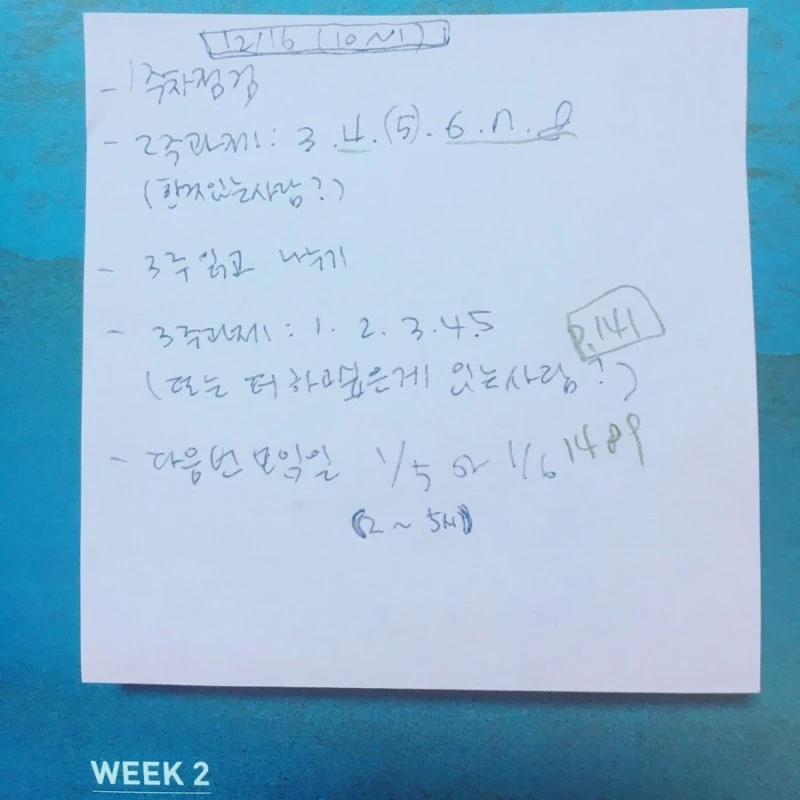 12/16 (10~1)
- 1주차점검
- 2주과제 : 3. 4. (5). 6. 7. 8
(한거있는사람?)
- 3주 읽고 나누기
- 3주과제 : 1. 2. 3. 4. 5
p.141
(또는 더 하고싶은게 있는사람?)
- 다음번 모임일 1/5 or 1/6
1489
(2 ~ 5시)
WEEK 2